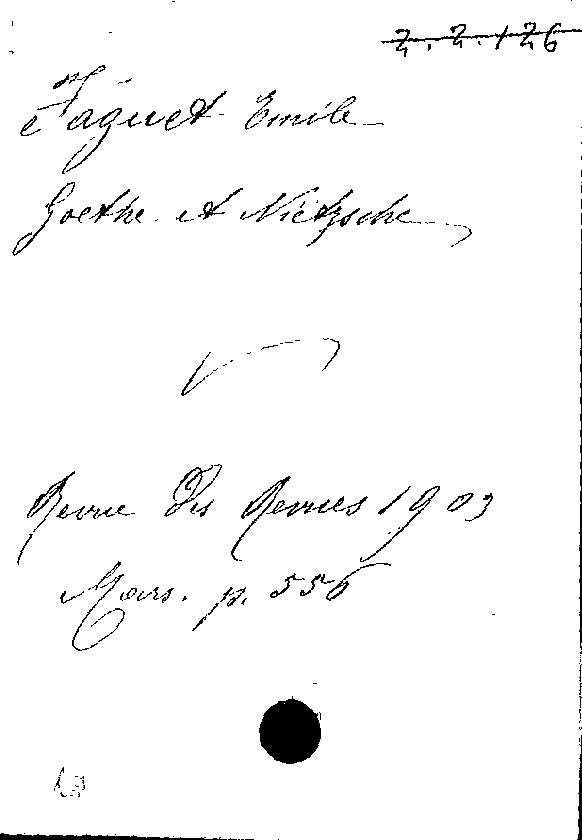 2.2.126
Faguet Emile
Goethe et Nietzsche
Revue des Revues 1903
Mars. p. 556